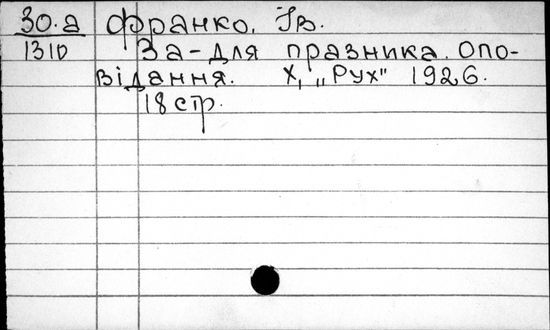 30.а Франко, Ів.
1310 За-для празника. Опо-
відання. Х, „Рух" 1926.
18 стр.